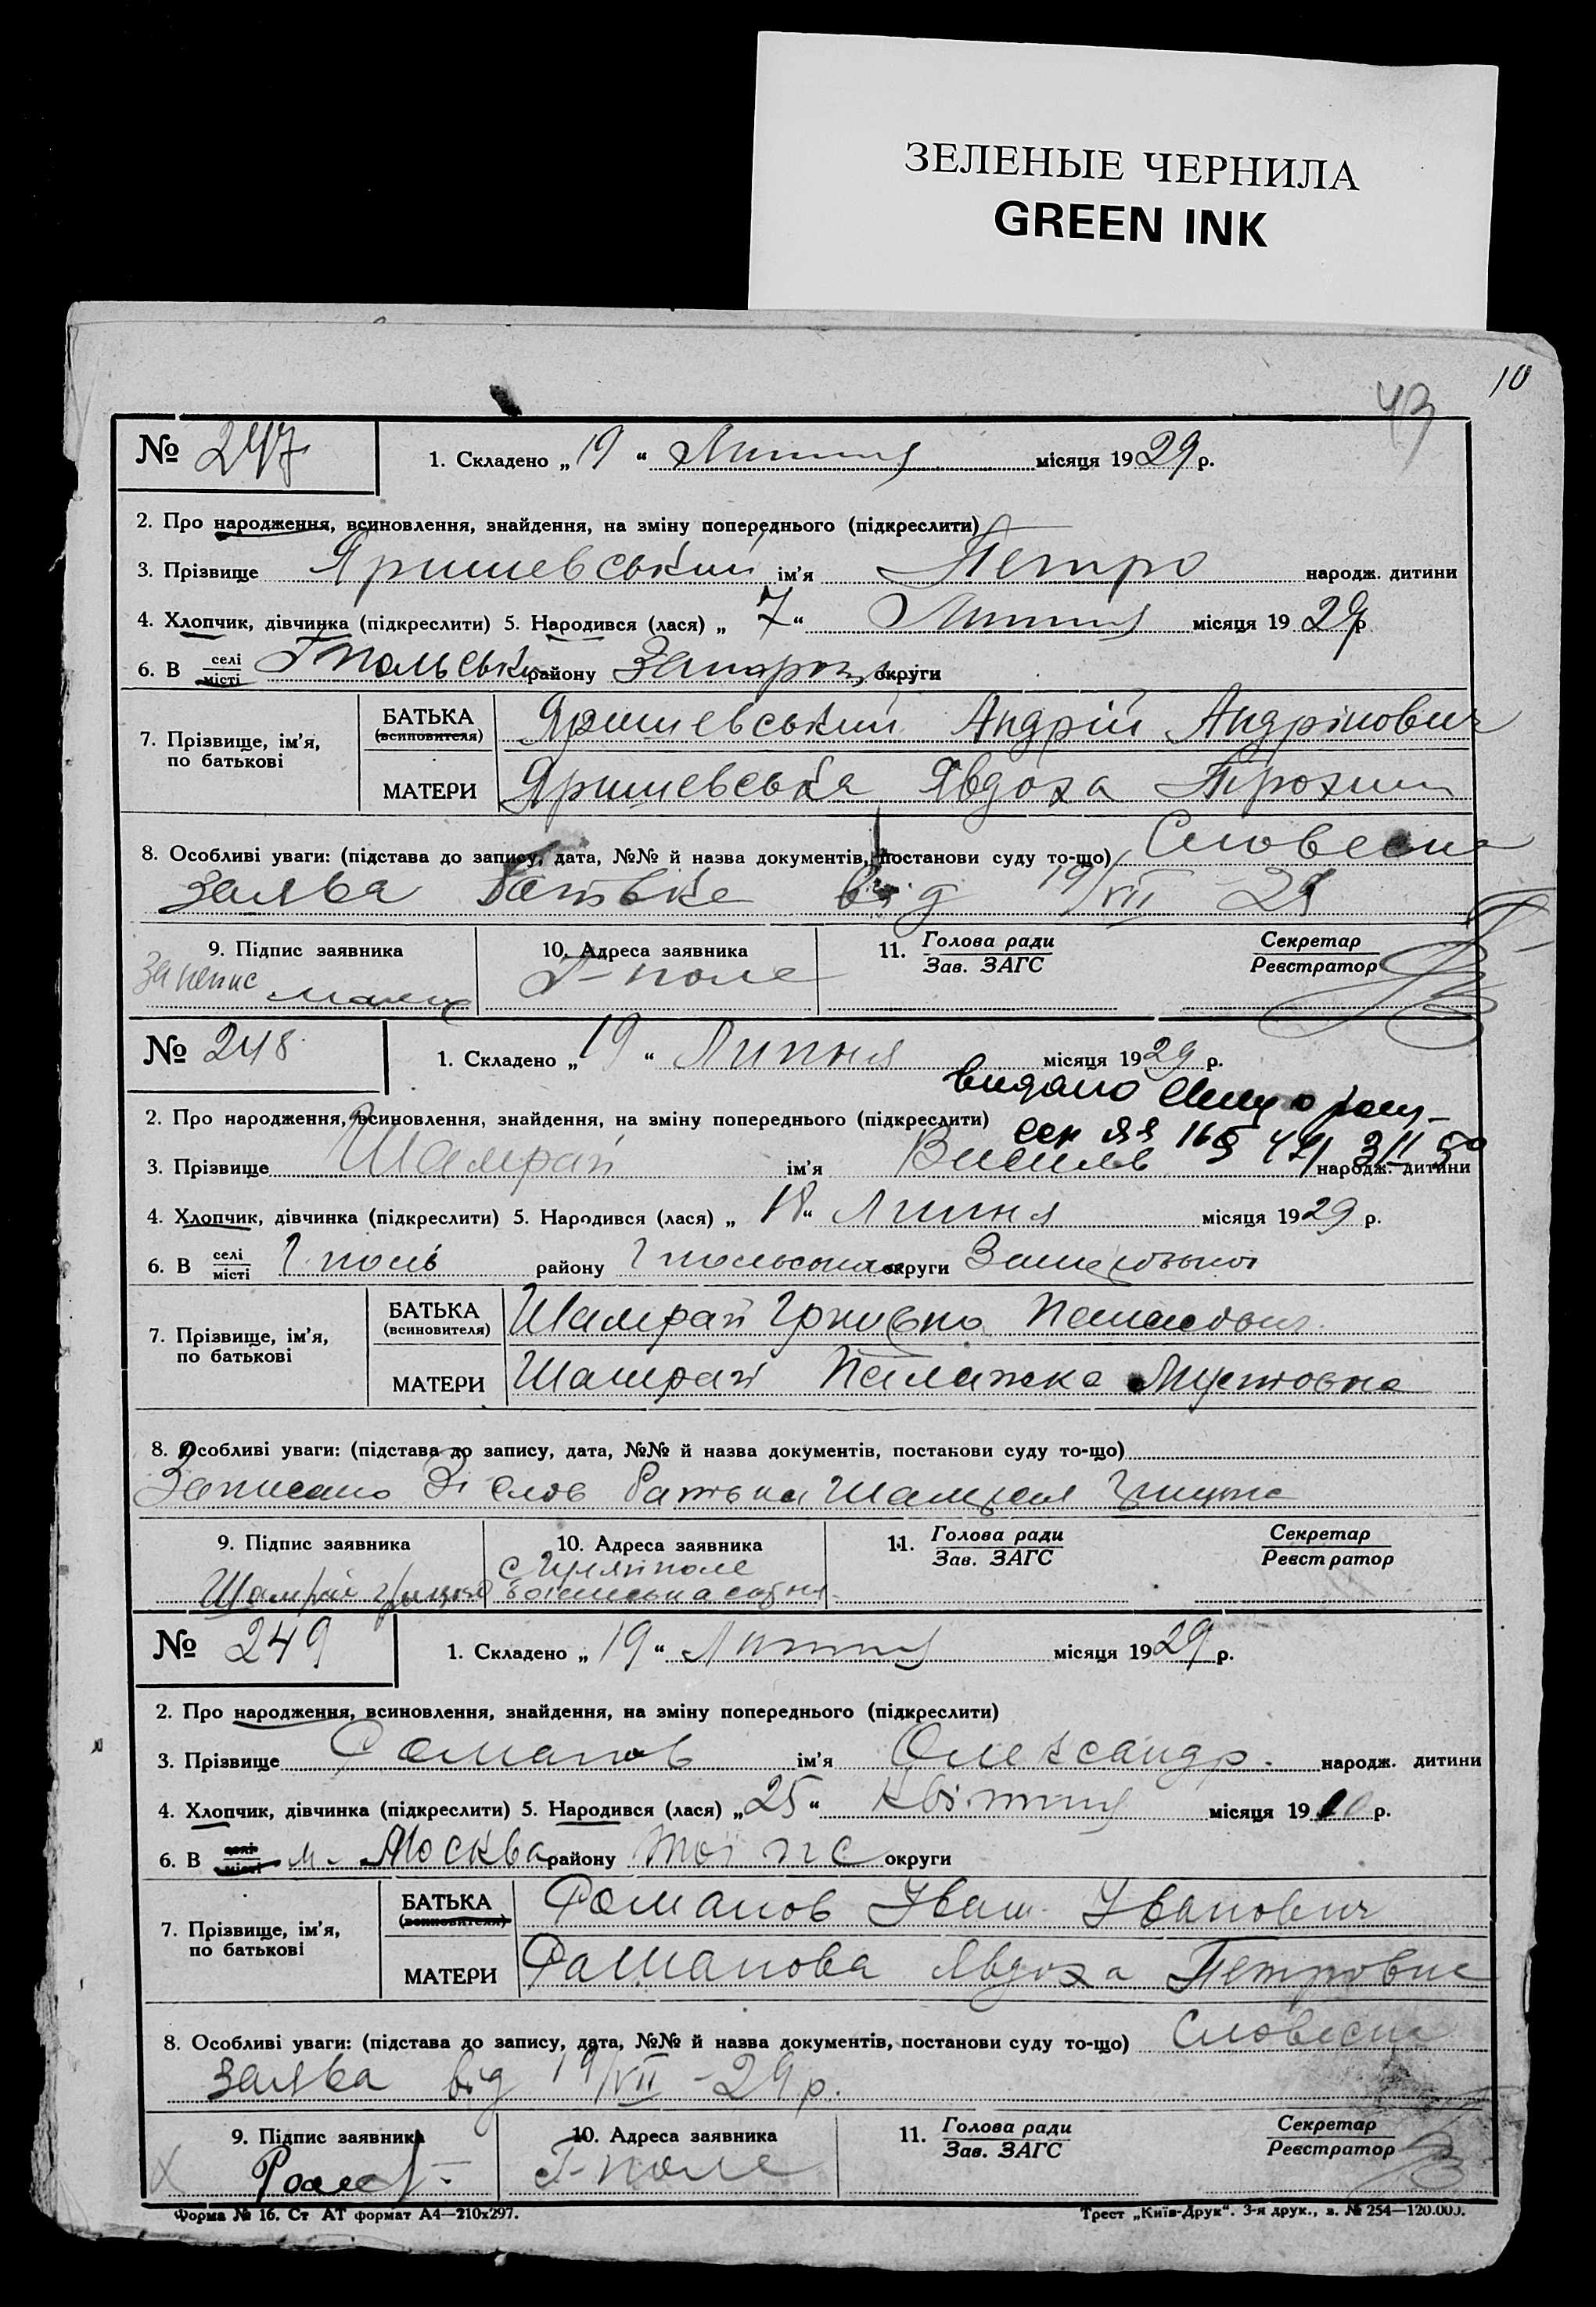 ЗЕЛЕНЫЕ ЧЕРНИЛА
GREEN INK
10
43
№ 247 1. Складено „19“ Липня місяця 1929 р.
2. Про народження, всиновлення, знайдення, на зміну попереднього (підкреслити)
3. Прізвище Яришевський ім'я Петро народж. дитини
4. Хлопчик, дівчинка (підкреслити) 5. Народився (лася) „7“ Липня місяця 1929 р
6. В селі місті Гпольськ району Запоріз. округи
7. Прізвище, ім'я, по батькові
БАТЬКА (всиновителя) Яришевський Андрій Андрійович
МАТЕРИ Яришевська Явдоха Трохим
8. Особливі уваги: (підстава до запису, дата, №№ й назва документів, постанови суду то-що) Словесна
заява батька від 19/VII 29
9. Підпис заявника 10. Адреса заявника 11. Голова ради Зав. ЗАГС Секретар Реєстратор
Г-поле
№ 248 1. Складено „19“ Липня місяця 1929 р.
видано
2. Про народження, всиновлення, знайдення, на зміну попереднього (підкреслити)
3. Прізвище Шамрай ім'я Василь народж. дитини
4. Хлопчик, дівчинка (підкреслити) 5. Народився (лася) „18“ Липня місяця 1929 р.
6. В селі місті Г. поль району Гпольського округи
7. Прізвище, ім'я, по батькові
БАТЬКА (всиновителя) Шамрай
МАТЕРИ Шамрай Палажка
8. Особливі уваги: (підстава до запису, дата, №№ й назва документів, постанови суду то-що)
Записано Зі слов батька Шамрая Грицька
9. Підпис заявника 10. Адреса заявника 11. Голова ради Зав. ЗАГС Секретар Реєстратор
с Гуляйполе
Шамрай сотня
№ 249 1. Складено „19“ Липня місяця 1929 р.
2. Про народження, всиновлення, знайдення, на зміну попереднього (підкреслити)
3. Прізвище Романов ім'я Олександр. народж. дитини
4. Хлопчик, дівчинка (підкреслити) 5. Народився (лася) „25“ Квітня місяця 1910 р.
6. В селі місті м. Москва району тої ж округи
7. Прізвище, ім'я, по батькові
БАТЬКА (всиновителя) Романов Іван Іванович
МАТЕРИ Романова Явдоха Петровна
8. Особливі уваги: (підстава до запису, дата, №№ й назва документів, постанови суду то-що) Словесна
заява від 19/VII -29 р.
9. Підпис заявника 10. Адреса заявника 11. Голова ради Зав. ЗАГС Секретар Реєстратор
Г-поле
Форма № 16. Ст АТ формат А4—210х297. Трест „Київ-Друк“. 3-я друк., з. № 254—120.000.